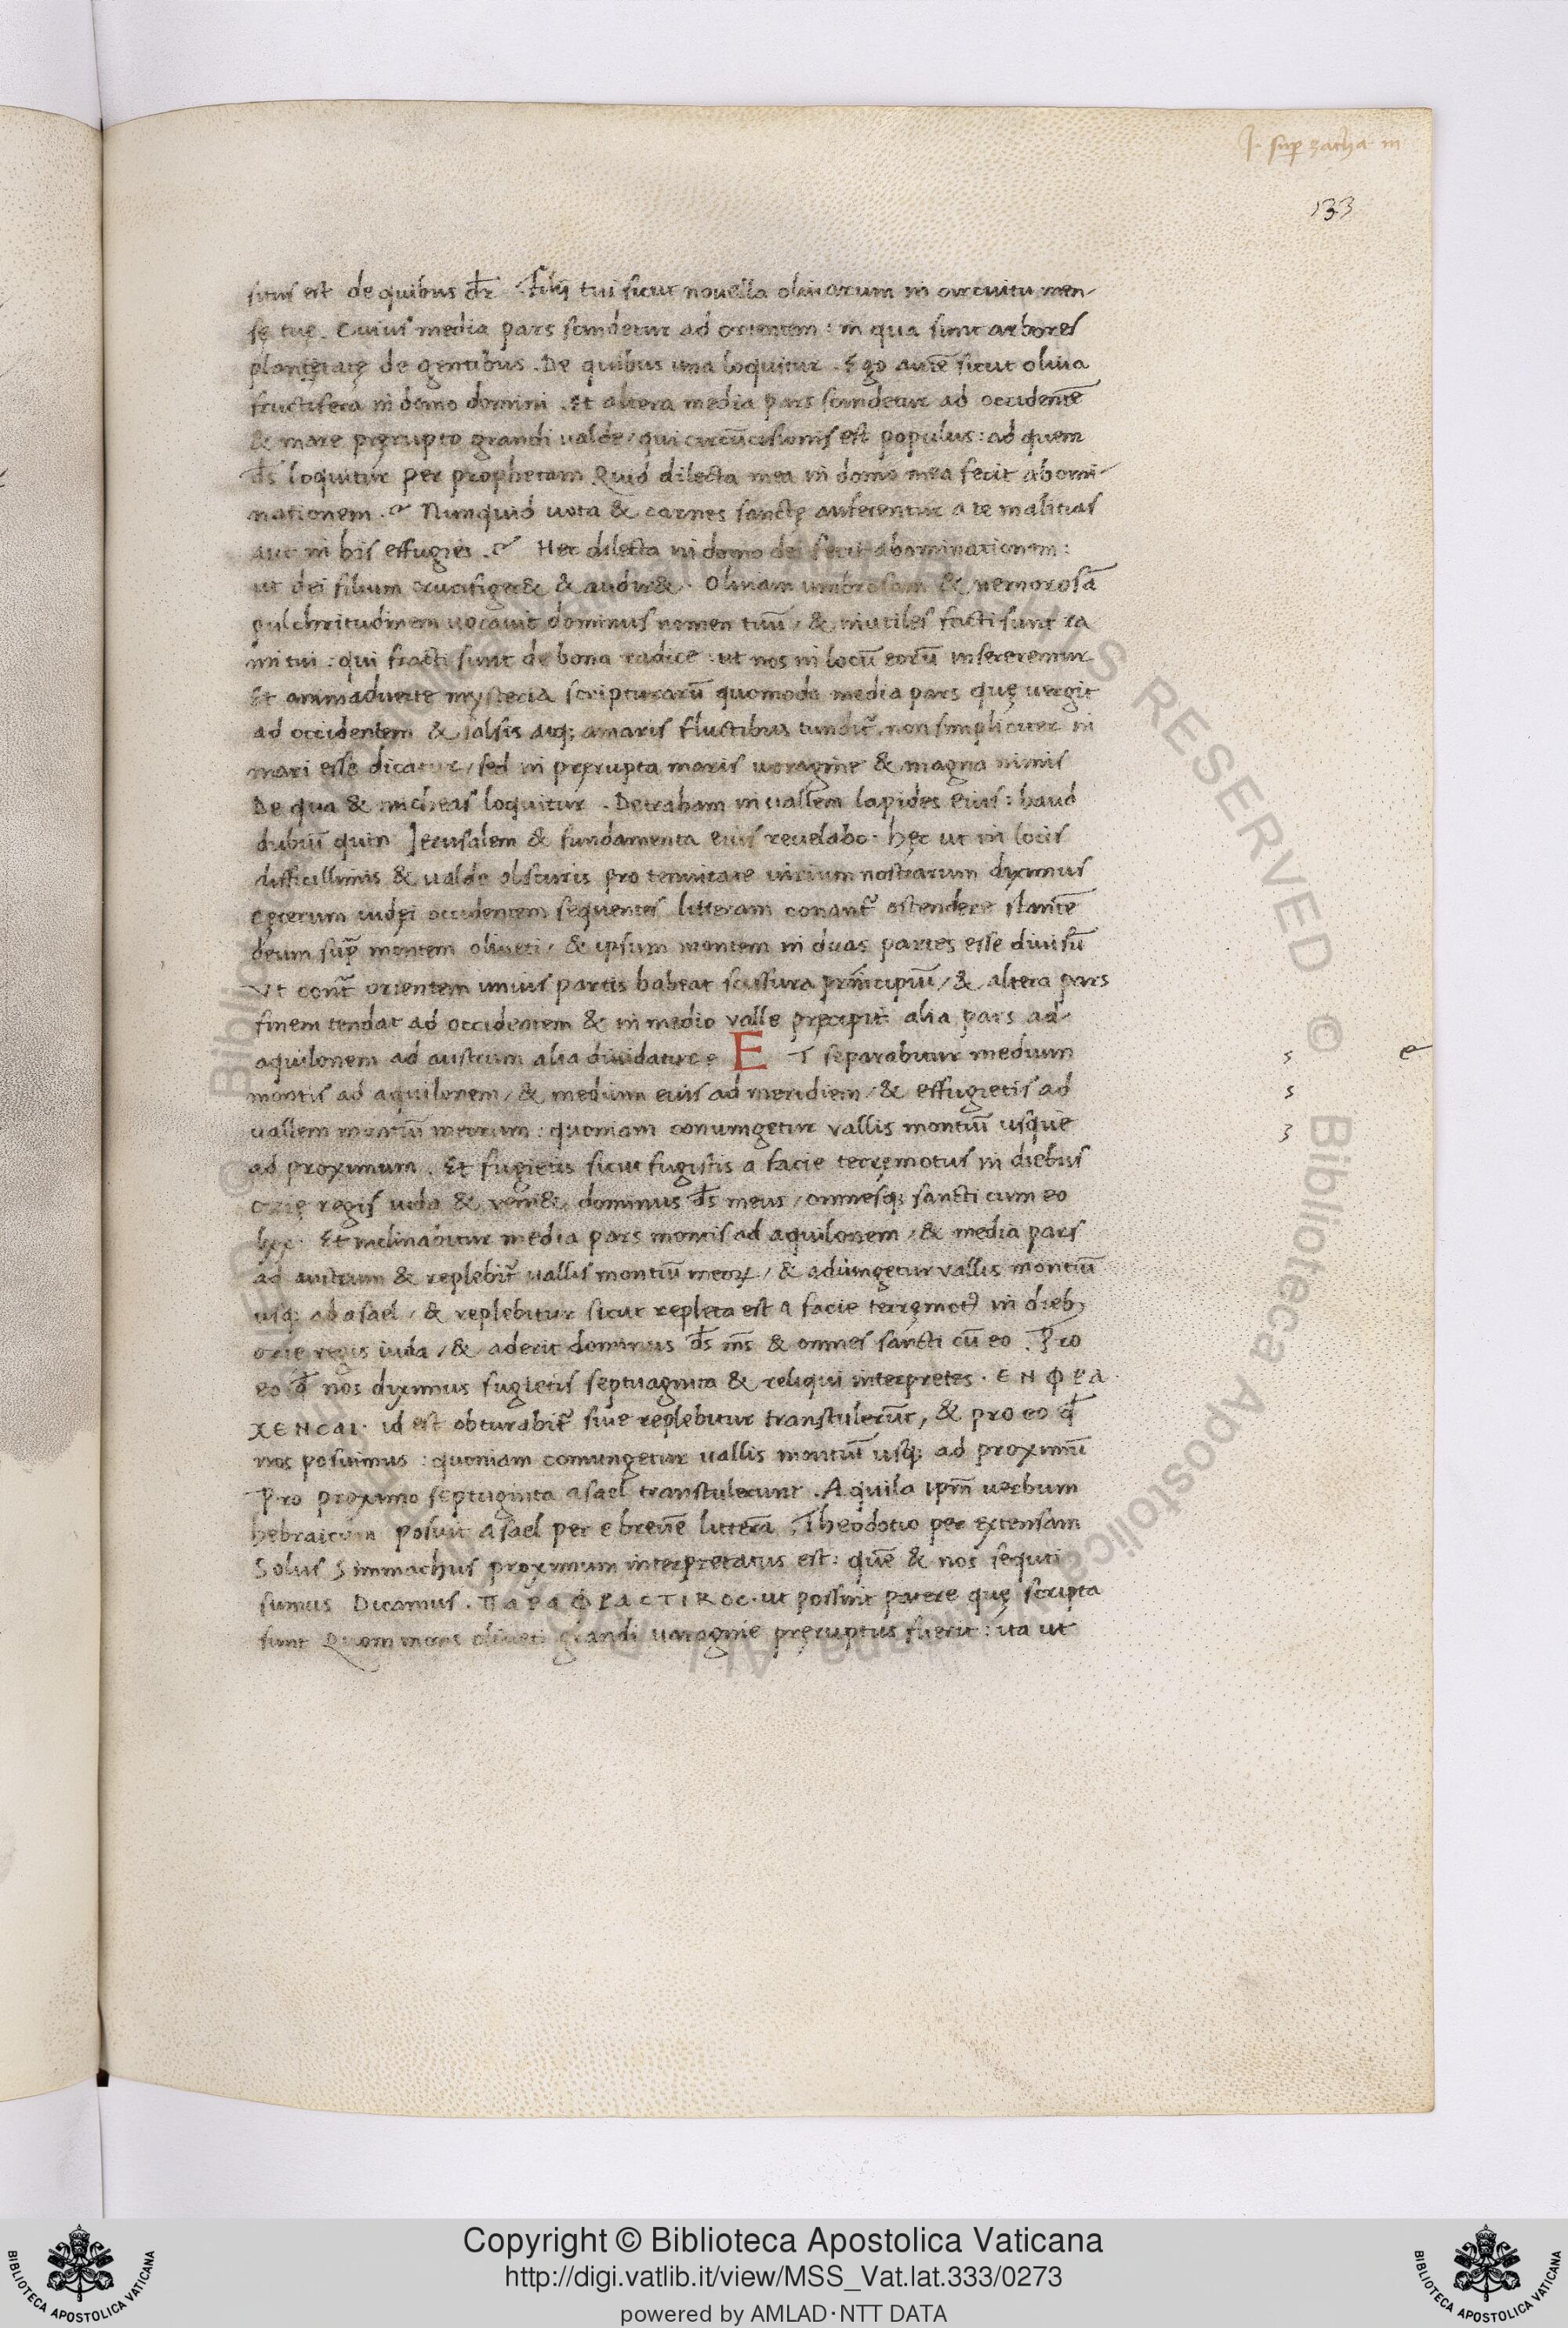 J. sup zacha m
133
situs est de quibus dr̄ Filij tui sicut nouella oliuarum in circuitu men-
sę tuę. Cuius media pars scindetur ad orientem : in qua sunt arbores
plantętatę de gentibus . De quibus una loquitur . Ego autē sicut oliua
fructifera in domo domini . Et altera media pars scindetur ad occidentē
& mare pręrupto grandi ualde / qui circūcisionis est populus : ad quem
d̄s loquitur per prophetam Quid dilecta mea in domo mea fecit abomi-
nationem . Nunquid uota & carnes sanctę auferentur a te malitias
aut in his effugies . Hec dilecta in domo dei fecit abominationem :
ut dei filium crucifiger& & audir& . Oliuam umbrosam & nemorosā
pulchritudinem uocauit dominus nomen tuū / & inutiles facti sunt ra
mi tui : qui fracti sunt de bona radice : ut nos in locū eorū insereremur
Et animaduerte mysteria scripturarū quomodo media pars quę uergit
ad occidentem & salsis atq; amaris fluctibus tundit̄ . non simpliciter in
mari esse dicatur / sed in pręrupta maris uoragine & magna nimis
De qua & micheas loquitur . Detraham in uallem lapides eius : haud
dubiū quin Jerusalem & fundamenta eius reuelabo . hęc ut in locis
difficillimis & ualde obscuris pro tenuitate uirium nostrarum diximus
cęterum iudęi occidentem sequentes litteram conant̄ ostendere stantē
deum sup̄ montem oliueti / & ipsum montem in duas partes esse diuisū
Vt cont̄ orientem unius partis habeat scissura prīncipiū / & altera pars
finem tendat ad occidentem & in medio valle pręcipiti alia pars ad
aquilonem ad austrum alia diuidatur E T separabitur medium
montis ad aquilonem / & medium eius ad meridiem / & effugietis ad
uallem montiū meorum : quoniam coniungetur vallis montiū usque
ad proximum . Et fugietis sicut fugistis a facie terręmotus in diebus
ozię regis iuda & veni& dominus d̄s meus / omnesq; sancti cum eo
lxx . Et inclinabitur media pars montis ad aquilonem / & media pars
ad austrum & replebit̄ uallis montiū meoꝝ / & adiungetur vallis montiū
usq; ad asael / & replebitur sicut repleta est a facie terręmotꝰ in dieb;
ozie regis iuda / & aderit dominus d̄s m̄s & omnes sancti cū eo . Pro
eo q̄ nos diximus fugietis septuaginta & reliqui interpretes . ΕΝΦΡΑ
ΧΕΝCΑΙ . id est obturabit̄ siue replebitur transtulerūt , & pro eo q̄
nos posuimus : quoniam coniungetur uallis montiū usq; ad proximū
Pro proximo septuginta asael transtulerunt . Aquila ipm̄ uerbum
hebraicum posuit asael per e breuē litterā . Theodotio per extensam
Solus Simmachus proximum interpretatus est : quē & nos sequti
sumus Dicamus . ΠΑΡΑΦΡΑCΤΙΚΟC . ut possint patere quę scripta
sunt Quom mons oliueti grandi uoragine pręruptus fuerit : ita ut
s
s
3
e
Copyright © Biblioteca Apostolica Vaticana
http://digi.vatlib.it/view/MSS_Vat.lat.333/0273
powered by AMLAD·NTT DATA
BIBLIOTECA APOSTOLICA VATICANA
BIBLIOTECA APOSTOLICA VATICANA